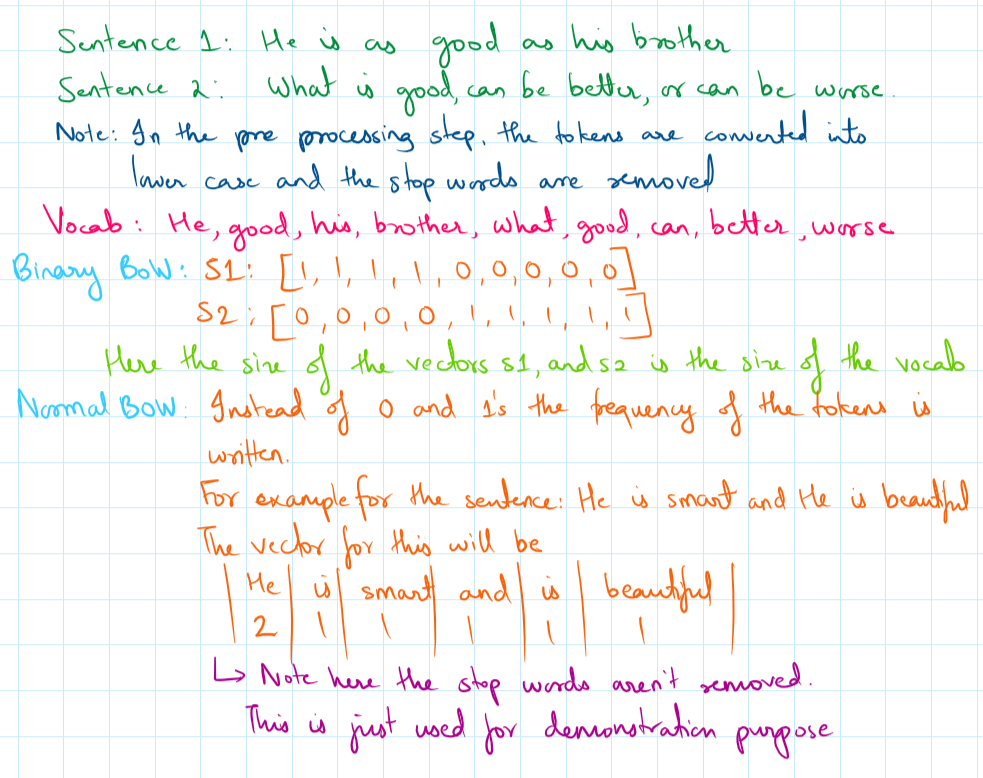 Sentence 1: He is as good as his brother
Sentence 2: What is good, can be better, or can be worse.
Note: In the pre processing step, the tokens are converted into
lower case and the stop words are removed
Vocab: He, good, his, brother, what, good, can, better, worse
Binary BoW: S1: [1, 1, 1, 1, 0, 0, 0, 0, 0]
S2: [0, 0, 0, 0, 1, 1, 1, 1, 1]
Here the size of the vectors s1, and s2 is the size of the vocab
Normal BOW: Instead of 0 and 1's the frequency of the tokens is
written.
For example for the sentence: He is smart and He is beautiful
The vector for this will be
| He | is | smart | and | is | beautiful |
| 2 | 1 | 1 | 1 | 1 | 1 |
↳ Note here the stop words aren't removed.
This is just used for demonstration purpose